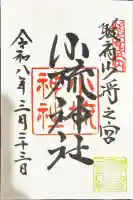 駿府少将之宮
小梳神社
令和八年三月二十三日
小梳
神社